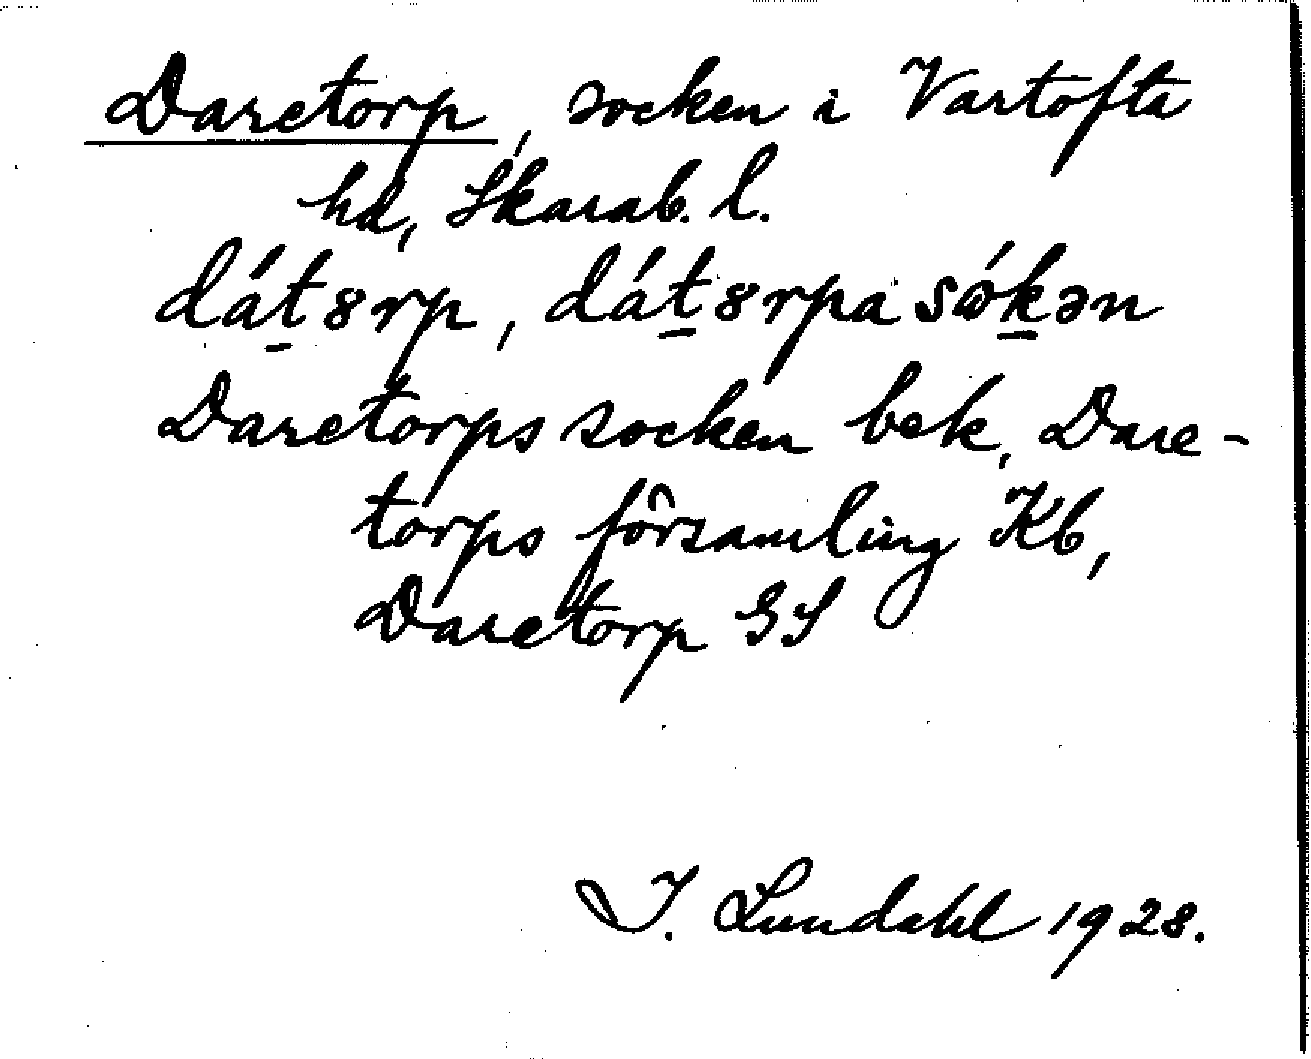 Daretorp, socken i Vartofta
hd, Skarab. l.
dát̲8rp, dát̲8rpa sók̲ən
Daretorps socken bek, Dare-
torps församling Kb,
Daretorp GS
I. Lundahl 1928.